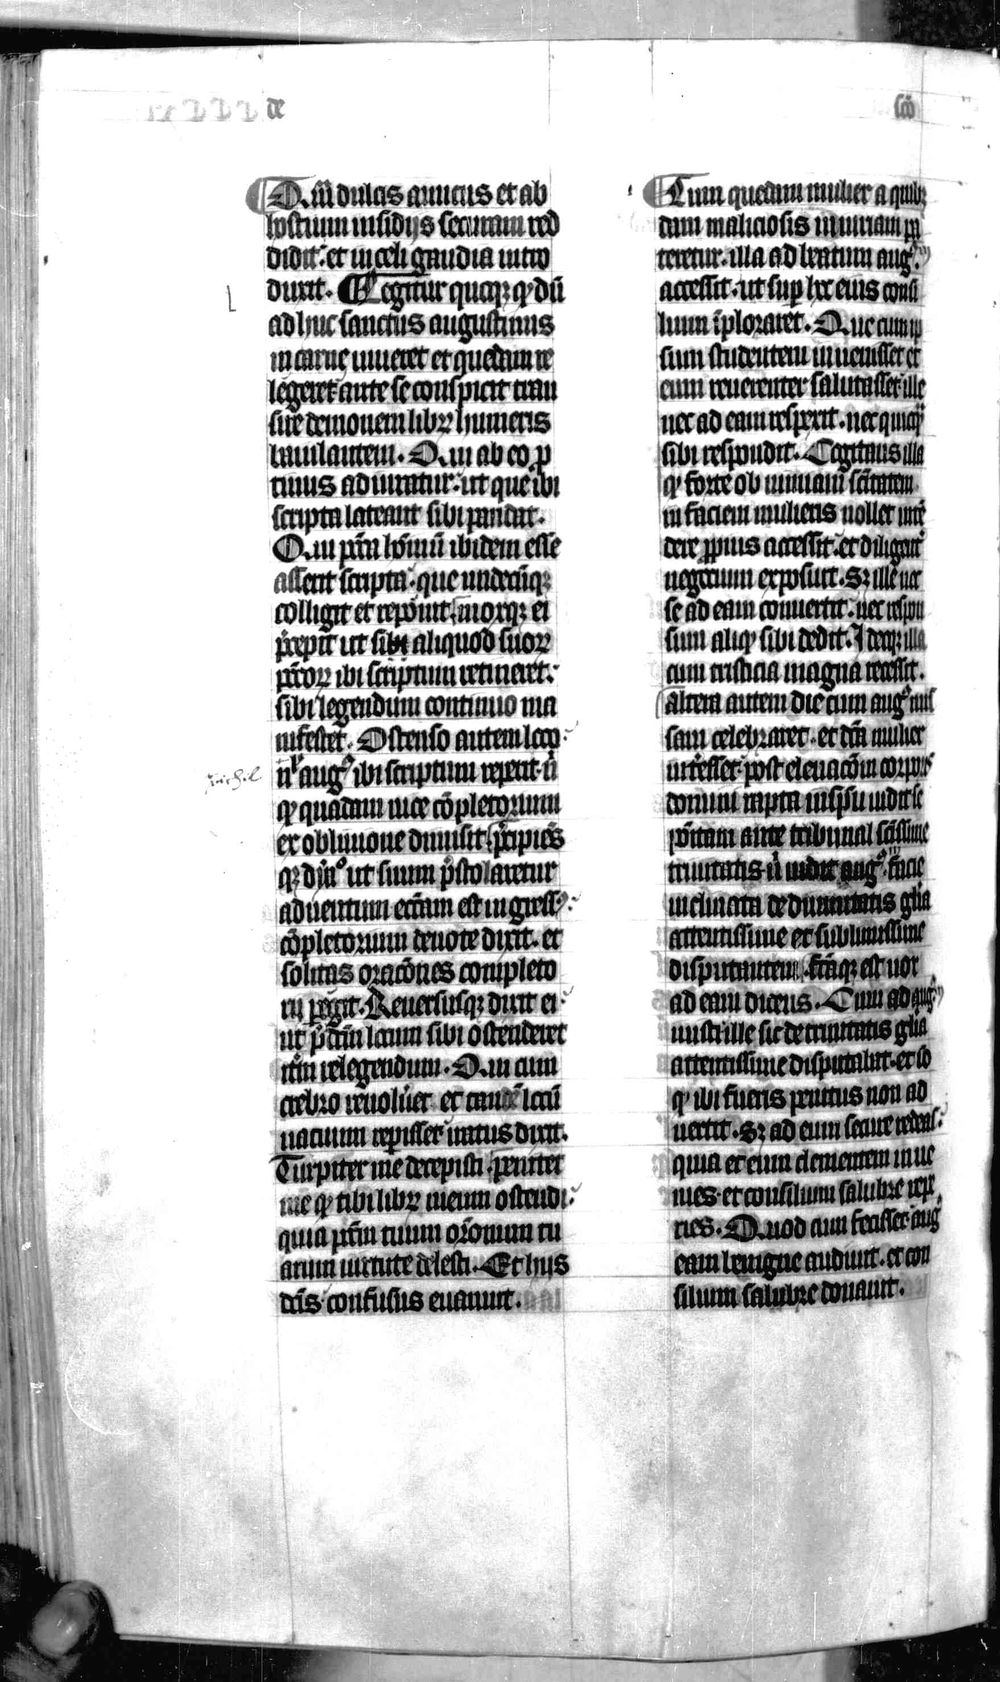 de
scō
Q̄m̄ dulcis amicus et ab
hostium insidijs securam red
didit. et in celi gaudia intro
duxit. Legitur quoqꝫ ꝙ dū
ad huc sanctus augustinus
in carne viueret et quedam re
legeret. ante se conspicit tran
sire demonem librꝫ humeris
baiulantem. Qui ab eo ꝓ
tinus adiuratur. ut que ibi
scripta lateant sibi pandat.
Qui pctā hoīm̄ ibidem esse
asserit scripta. que undecūqꝫ
colligit et reponit. moxqꝫ ei
p̄cepit ut sibi aliquod suorꝫ
pctorꝫ ibi scriptum retineret.
sibi legendum continuo ma
nifestet. Ostenso autem loco
nichil
nl̄ augꝰ ibi scriptum reperit n̄
ꝙ quadam vice cōpletorium
ex obliuione dimisit. p̄cipiēs
qꝫ dyāꝰ ut suum p̄stolaretur
aduentum ecclām est ingressꝰ.
cōpletorium deuote dixit. et
solitas oracōnes completo
rij peregit. Reuersusqꝫ dixit ei
ut p̄dcm̄ locum sibi ostenderet
itm̄ relegendum. Qui cum
crebro reuoluer et tandē locū
vacuum repisset iratus dixit.
Turpiter me decepisti. penitet
me ꝙ tibi librꝫ meum ostendi.
quia pctm̄ tuum orōnum tu
arum virtute delesti. Et hijs
dcīs confusus euanuit.
Cum quedam mulier a quibꝫ
dam maliciosis iniuriam pa
teretur. illa ad beatum augꝰ
accessit. ut suꝑ hec eius consi
lium īploraret. Que cum ip
sum studentem inuenisset et
eum reuerenter salutasset. ille
nec ad eam respexit. nec quicꝙ
sibi respondit. Cogitans illa
ꝙ forte ob nimiam sc̄itatem
in faciem mulieris nollet intē
dere ꝓpius accessit. et diligentʼ
negocium exposuit. Sꝫ ille nec
se ad eam conuertit. nec respon
sum aliqͦ sibi dedit. Ideoqꝫ illa
cum tristicia magna recessit.
Altera autem die cum augꝰ mis
sam celebraret. et dc̄a mulier
int̄esset. post eleuacōm corporis
domini rapta in spū vidit se
positam ante tribunal sc̄issime
trinitatis n̄ vidit augꝰ facie
inclinata de diuinitatis gl̄ia
attentissime et sublimissime
disputantem. fctāqꝫ est vox
ad eam dicens. Cum ad augꝰ
iuisti ille sic de trinitatis gl̄ia
attentissime disputabat. et io
ꝙ ibi fueris penitus non ad
uertit. Sꝫ ad eum secure redeas.
quia et eum clementem inue
nies. et consilium salubre repe
ries. Quod cum fecisset augꝰ
eam benigne audiuit. et con
silium salubre donauit.